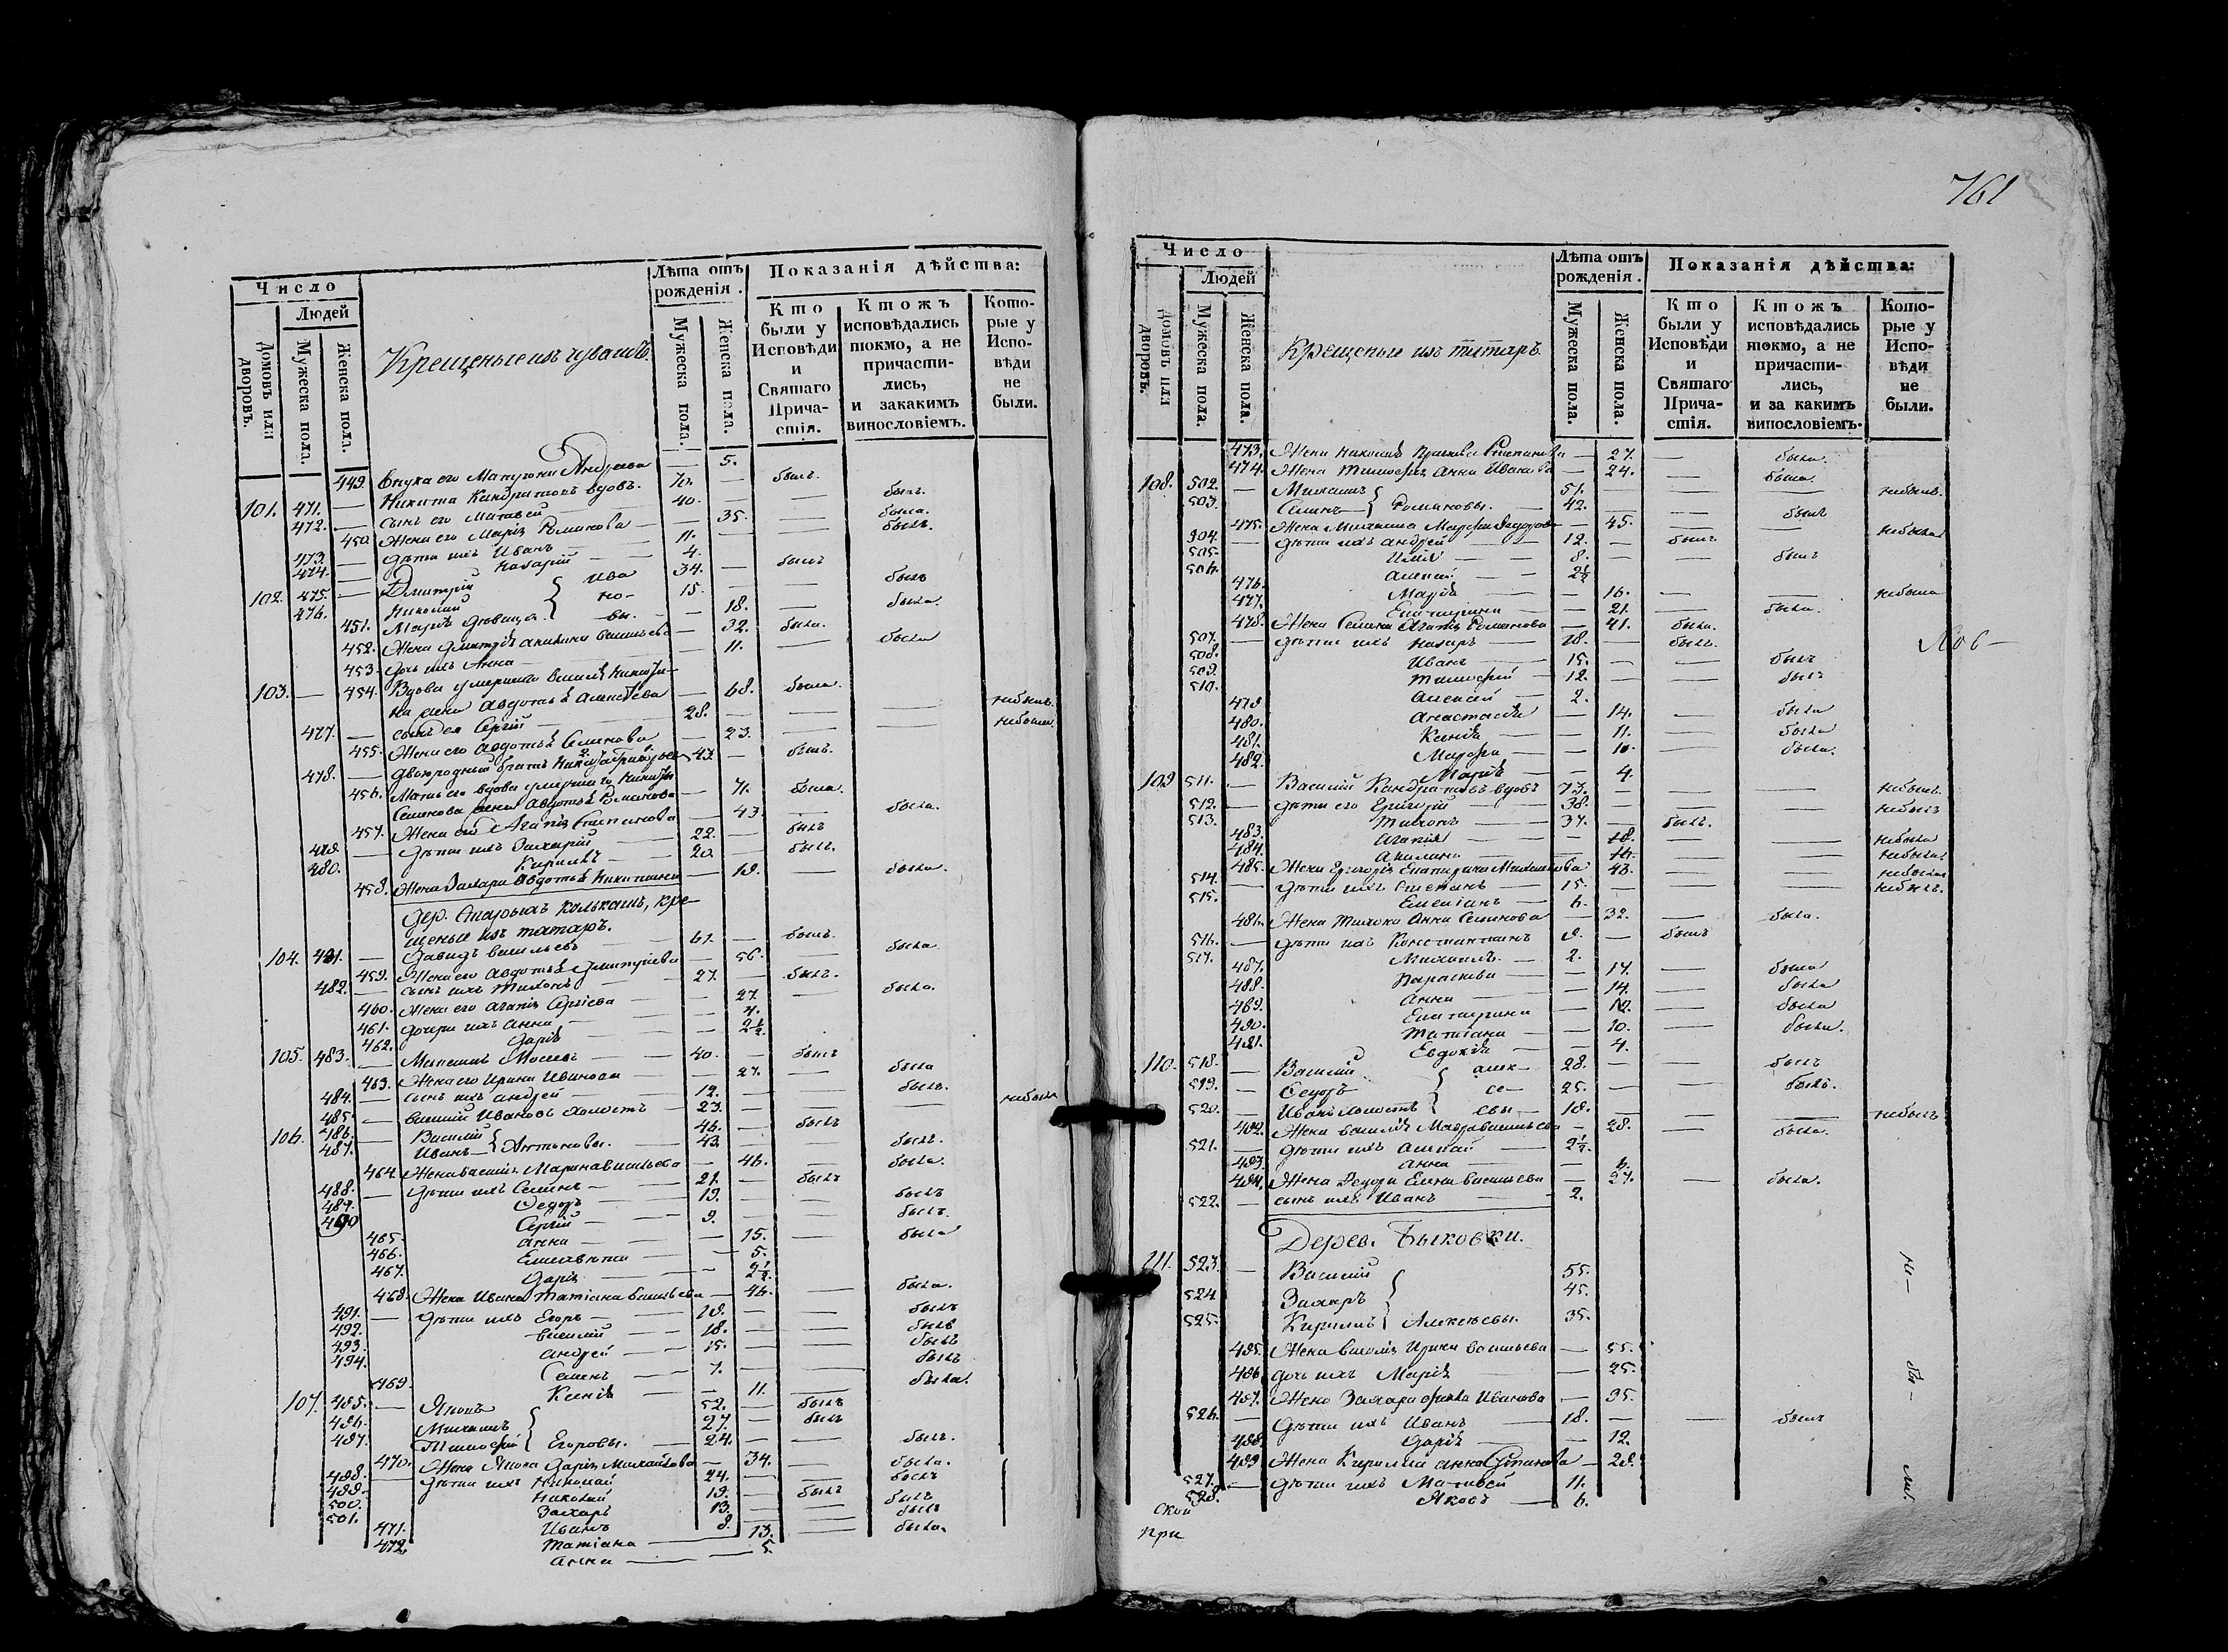 Число
Людей
Домовъ или дворовъ.
Мужеска пола.
Женска пола.
Крещеные изъ чувашъ.
Лѣта отъ рожденія.
Мужеска пола.
Женска пола.
Показанія дѣйства:
Кто были у Исповѣди и Святаго Причастія.
Ктожъ исповѣдались токмо, а не причастились, и закакимъ винословіемъ.
Которые у Исповѣди не были.
449. Внука его Андреева — 5.
101. 471. — Никита Кандратовъ вдовъ. 70. — былъ.
472. — сынъ его Матвей 40. — — былъ.
450. Жена его Марія Романова — 35. — была.
473. — дѣти ихъ Иванъ 11. — — былъ.
474. — Назарій 4.
102. 475. — Дмитрій 34. — былъ
476. Николай 15. — — былъ
Ива
но-
вы.
451. Марія дѣвица — 18. — была.
452. Жена Дмитрія Акилина Васильева — 32. была.
453. дочь ихъ Анна — 11. — была
103. — 454. Вдова умершаго Василія Никити-
на жена Авдотья Алексѣева — 68. была.
477. — сынъ ея Сергій 28. — — — небылъ.
455. Жена его Авдотья Семенова — 23. — — небыла.
478. — двоюродный братъ Никита Григорьев 43. — былъ.
456. Мать его вдова умершаго Никиты
Семенова жена Авдотья Романова — 71. была.
457. Жена его Агапія Степанова — 43. — была.
479. — дѣти ихъ Захарій 22. — былъ
480. Кирилъ 20. — былъ.
458. Жена Захара Авдотья Никитина — 19. — была.
Дер. Старыхъ Колькашъ, кре-
щеные изъ татаръ.
104. 481. — Давидъ Васильевъ 61. — былъ.
459. Жена его Авдотья Дмитріева — 56. — была
482. — сынъ ихъ Тихонъ 27. — былъ.
460. Жена его Агапія Сергіева — 27. — была.
461. дочери ихъ Анна — 4.
462. Дарія — 2½.
105. 483. — Моисеевъ 40. — былъ
463. Жена его Ирина Иванова — 27. — была
484. — сынъ ихъ Андрей 12. — — былъ.
485. — Василій Ивановъ холостъ 23. — — — небылъ
106. 486. — Василій 46. — былъ
487. Иванъ 43. — — былъ.
464. Жена Василія Марина Васильева — 46. — была.
488. — дѣти ихъ Семенъ 21. — былъ
489. Федоръ 19. — — былъ
490 Сергій 9. — — былъ.
465. Анна — 15. — была
466. Елисавета — 5.
467. Дарія — 2½.
468. Жена Ивана Татіана Васильева — 46. — была.
491. — дѣти ихъ Егоръ 18. — — былъ
492. Василій 18. — — былъ
493. Андрей 15. — — былъ
494. Семенъ 7. — — былъ
469. Ксенія — 11. — была.
107. 495. — Яковъ 52. — былъ
496. Михаилъ 27. — былъ
497. Тимофей Егоровы. 24. — — былъ.
470. Жена Якова Дарія Михайлова — 34. — была.
498. — дѣти ихъ Николай 24. — — былъ
499. Николай 19. — былъ
500. Захаръ 13. — — былъ
501. Иванъ 9. — — былъ
471. Татіана — 13. — была.
472. Анна — 5.
761
Число
Людей
Домовъ или дворовъ.
Мужеска пола.
Женска пола.
Крещеные изъ татаръ.
Лѣта отъ рожденія.
Мужеска пола.
Женска пола.
Показанія дѣйства:
Кто были у Исповѣди и Святаго Причастія.
Ктожъ исповѣдались токмо, а не причастились, и за какимъ винословіемъ.
Которые у Исповѣди не были.
473. Жена Николая Степанова — 27. — была.
474. Жена Тимофея Анна Иванова — 24. — была.
108. 502. — Михаилъ 51. — — — небылъ.
503. Семенъ Романовы. 42. — — былъ
475. Жена Михаила Марфа Федорова — 45. — — небыла
504. — дѣти ихъ Андрей 12. — былъ.
505. Илія 8. — — былъ
506. Алексѣй 2½
476. Марія — 16. — — небыла
477. Екатерина — 21. — была.
478. Жена Семена Агапія Романова — 41. была.
507. — дѣти ихъ Назаръ 18. — былъ.
508. Иванъ 15. — — былъ
509. Тимофей 12. — — былъ
510. Алексѣй 2.
479 Анастасія — 14. — была
480. Ксенія — 11. — была
481. Марфа — 10. — была.
482. Марія — 4.
109 511. — Василій Кандратовъ вдовъ 73. — — — небылъ.
512. — дѣти его Григорій 38. — — — небылъ
513. Тихонъ 37. — былъ.
483. Агапія — 18. — — небыла
484. Акилина — 16. — — небыла.
485. Жена Григорія Екатерина Михайлова 43. — — небыла
514. — дѣти ихъ Степанъ 15. — — — небылъ.
515. Емеліанъ 6.
486. Жена Тихона Анна Семенова — 32. — была.
516. — дѣти ихъ Константинъ 8. — былъ
517. Михаилъ. 2.
487. Параскева — 17. — была
488. Анна — 14. — была
489. Екатерина — 12. — была
490. Татіана — 10. — была.
491. Евдокія — 4.
110. 518. — Василій 28. — — былъ
519. — Федоръ 25. — — былъ.
520. — Иванъ холостъ 18. — — — небылъ
алек-
се-
евы
492. Жена Василія Мавра Васильева — 28. — была.
521. — дѣти ихъ Алексѣй 2½.
493. Анна — 6.
494. Жена Федора Елена Васильева — 27. — была.
522. — сынъ ихъ Иванъ 2.
Дерев. Быковки.
111. 523. — Василій 55.
524. Захаръ 45.
525. Кирилъ Алексѣевы. 35.
495. Жена Василія Ирина Васильева — 55.
496. дочь ихъ Марія — 25.
497. Жена Захара Иванова — 35.
526. — дѣти ихъ Иванъ 18. — — былъ
498. Дарія — 12.
499. Жена Кирилла Анна Степанова — 28.
527. — дѣти ихъ Матвей 11.
528. Яковъ 6.
не-
бы-
ли.
ской
при